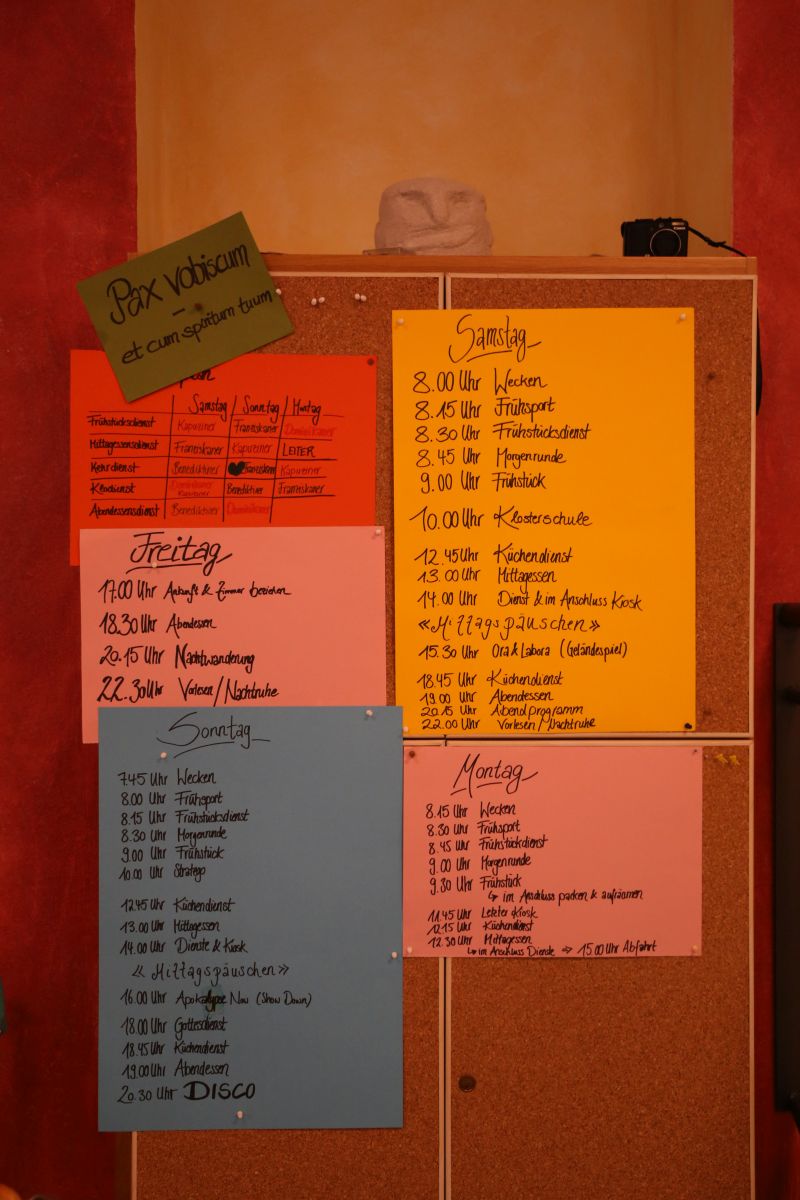 Pax vobiscum
–
et cum spiritum tuum
Samstag / Sonntag / Montag
Frühstücksdienst Kapuziner Franziskaner Dominikaner
Mittagessensdienst Franziskaner Kapuziner LEITER
Kehrdienst Benediktiner Franziskaner Kapuziner
Klodienst Dominikaner Kapuziner Benediktiner Franziskaner
Abendessensdienst Benediktiner Dominikaner
Freitag
17.00 Uhr Ankunft & Zimmer beziehen
18.30 Uhr Abendessen
20.15 Uhr Nachtwanderung
22.30 Uhr Vorlesen / Nachtruhe
Samstag
8.00 Uhr Wecken
8.15 Uhr Frühsport
8.30 Uhr Frühstücksdienst
8.45 Uhr Morgenrunde
9.00 Uhr Frühstück
10.00 Uhr Klosterschule
12.45 Uhr Küchendienst
13.00 Uhr Mittagessen
14.00 Uhr Dienst & im Anschluss Kiosk
«Mittagspäuschen»
15.30 Uhr Ora & Labora (Geländespiel)
18.45 Uhr Küchendienst
19.00 Uhr Abendessen
20.15 Uhr Abendprogramm
22.00 Uhr Vorlesen / Nachtruhe
Sonntag
7.45 Uhr Wecken
8.00 Uhr Frühsport
8.15 Uhr Frühstücksdienst
8.30 Uhr Morgenrunde
9.00 Uhr Frühstück
10.00 Uhr Stratego
12.45 Uhr Küchendienst
13.00 Uhr Mittagessen
14.00 Uhr Dienste & Kiosk
« Mittagspäuschen »
16.00 Uhr Apokalypse Now (Show Down)
18.00 Uhr Gottesdienst
18.45 Uhr Küchendienst
19.00 Uhr Abendessen
20.30 Uhr DISCO
Montag
8.15 Uhr Wecken
8.30 Uhr Frühsport
8.45 Uhr Frühstückdienst
9.00 Uhr Morgenrunde
9.30 Uhr Frühstück
↳ im Anschluss packen & aufräumen
11.45 Uhr Letzter Kiosk
12.15 Uhr Küchendienst
12.30 Uhr Mittagessen
↳ im Anschluss Dienste ⇒ 15.00 Uhr Abfahrt